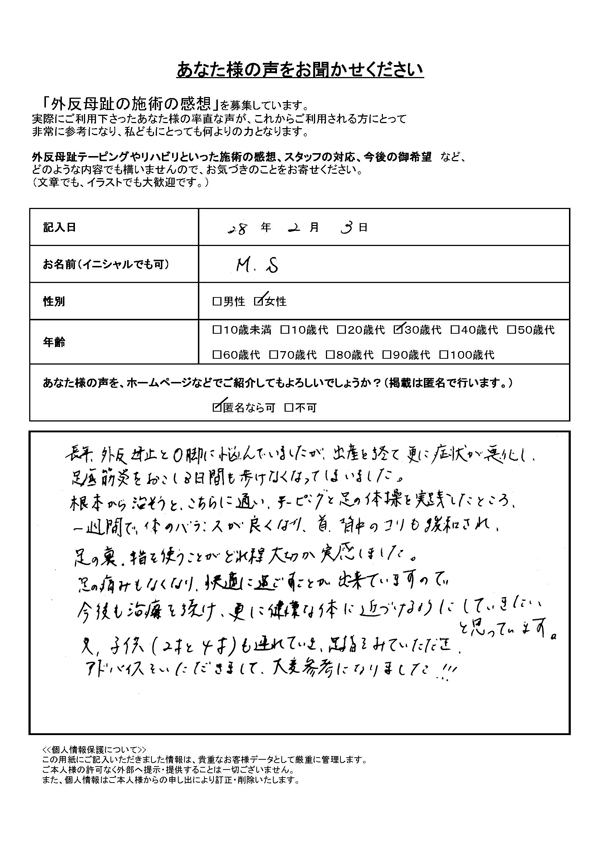 あなた様の声をお聞かせください
「外反母趾の施術の感想」を募集しています。
実際にご利用下さったあなた様の率直な声が、これからご利用される方にとって
非常に参考になり、私どもにとっても何よりの力となります。
外反母趾テーピングやリハビリといった施術の感想、スタッフの対応、今後の御希望 など、
どのような内容でも構いませんので、お気づきのことをお寄せください。
(文章でも、イラストでも大歓迎です。)
記入日 28 年 2 月 3 日
お名前(イニシャルでも可) M.S
性別 □男性 ☑女性
年齢 □10歳未満 □10歳代 □20歳代 ☑30歳代 □40歳代 □50歳代
□60歳代 □70歳代 □80歳代 □90歳代 □100歳代
あなた様の声を、ホームページなどでご紹介してもよろしいでしょうか?(掲載は匿名で行います。)
☑匿名なら可 □不可
長年、外反母趾とO脚に悩んでいましたが、出産を経て更に症状が悪化し、
足底筋炎をおこし3日間も歩けなくなってしまいました。
根本から治そうと、こちらに通い、テーピングと足の体操を実践したところ、
一週間で、体のバランスが良くなり、首、背中のコリも緩和され、
足の裏、指を使うことがどれ程大切か実感しました。
足の痛みもなくなり、快適に過ごすことが出来ていますので
今後も治療を続け、更に健康な体に近づけるようにしていきたい
と思っています。
又、子供(2才と4才)も連れていき、足指をみていただき、
アドバイスをいただきまして、大変参考になりました!!!
<<個人情報保護について>>
この用紙にご記入いただきました情報は、貴重なお客様データとして厳重に管理します。
ご本人様の許可なく外部へ提示・提供することは一切ございません。
また、個人情報はご本人様からの申し出により訂正・削除いたします。